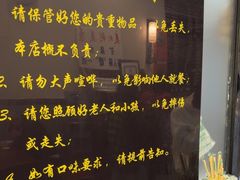 请保管好您的贵重物品，以免丢失，
本店概不负责；
2、请勿大声喧哗，以免影响他人就餐；
3、请您照顾好老人和小孩，以免摔伤
或走失；
如有口味要求，请提前告知。